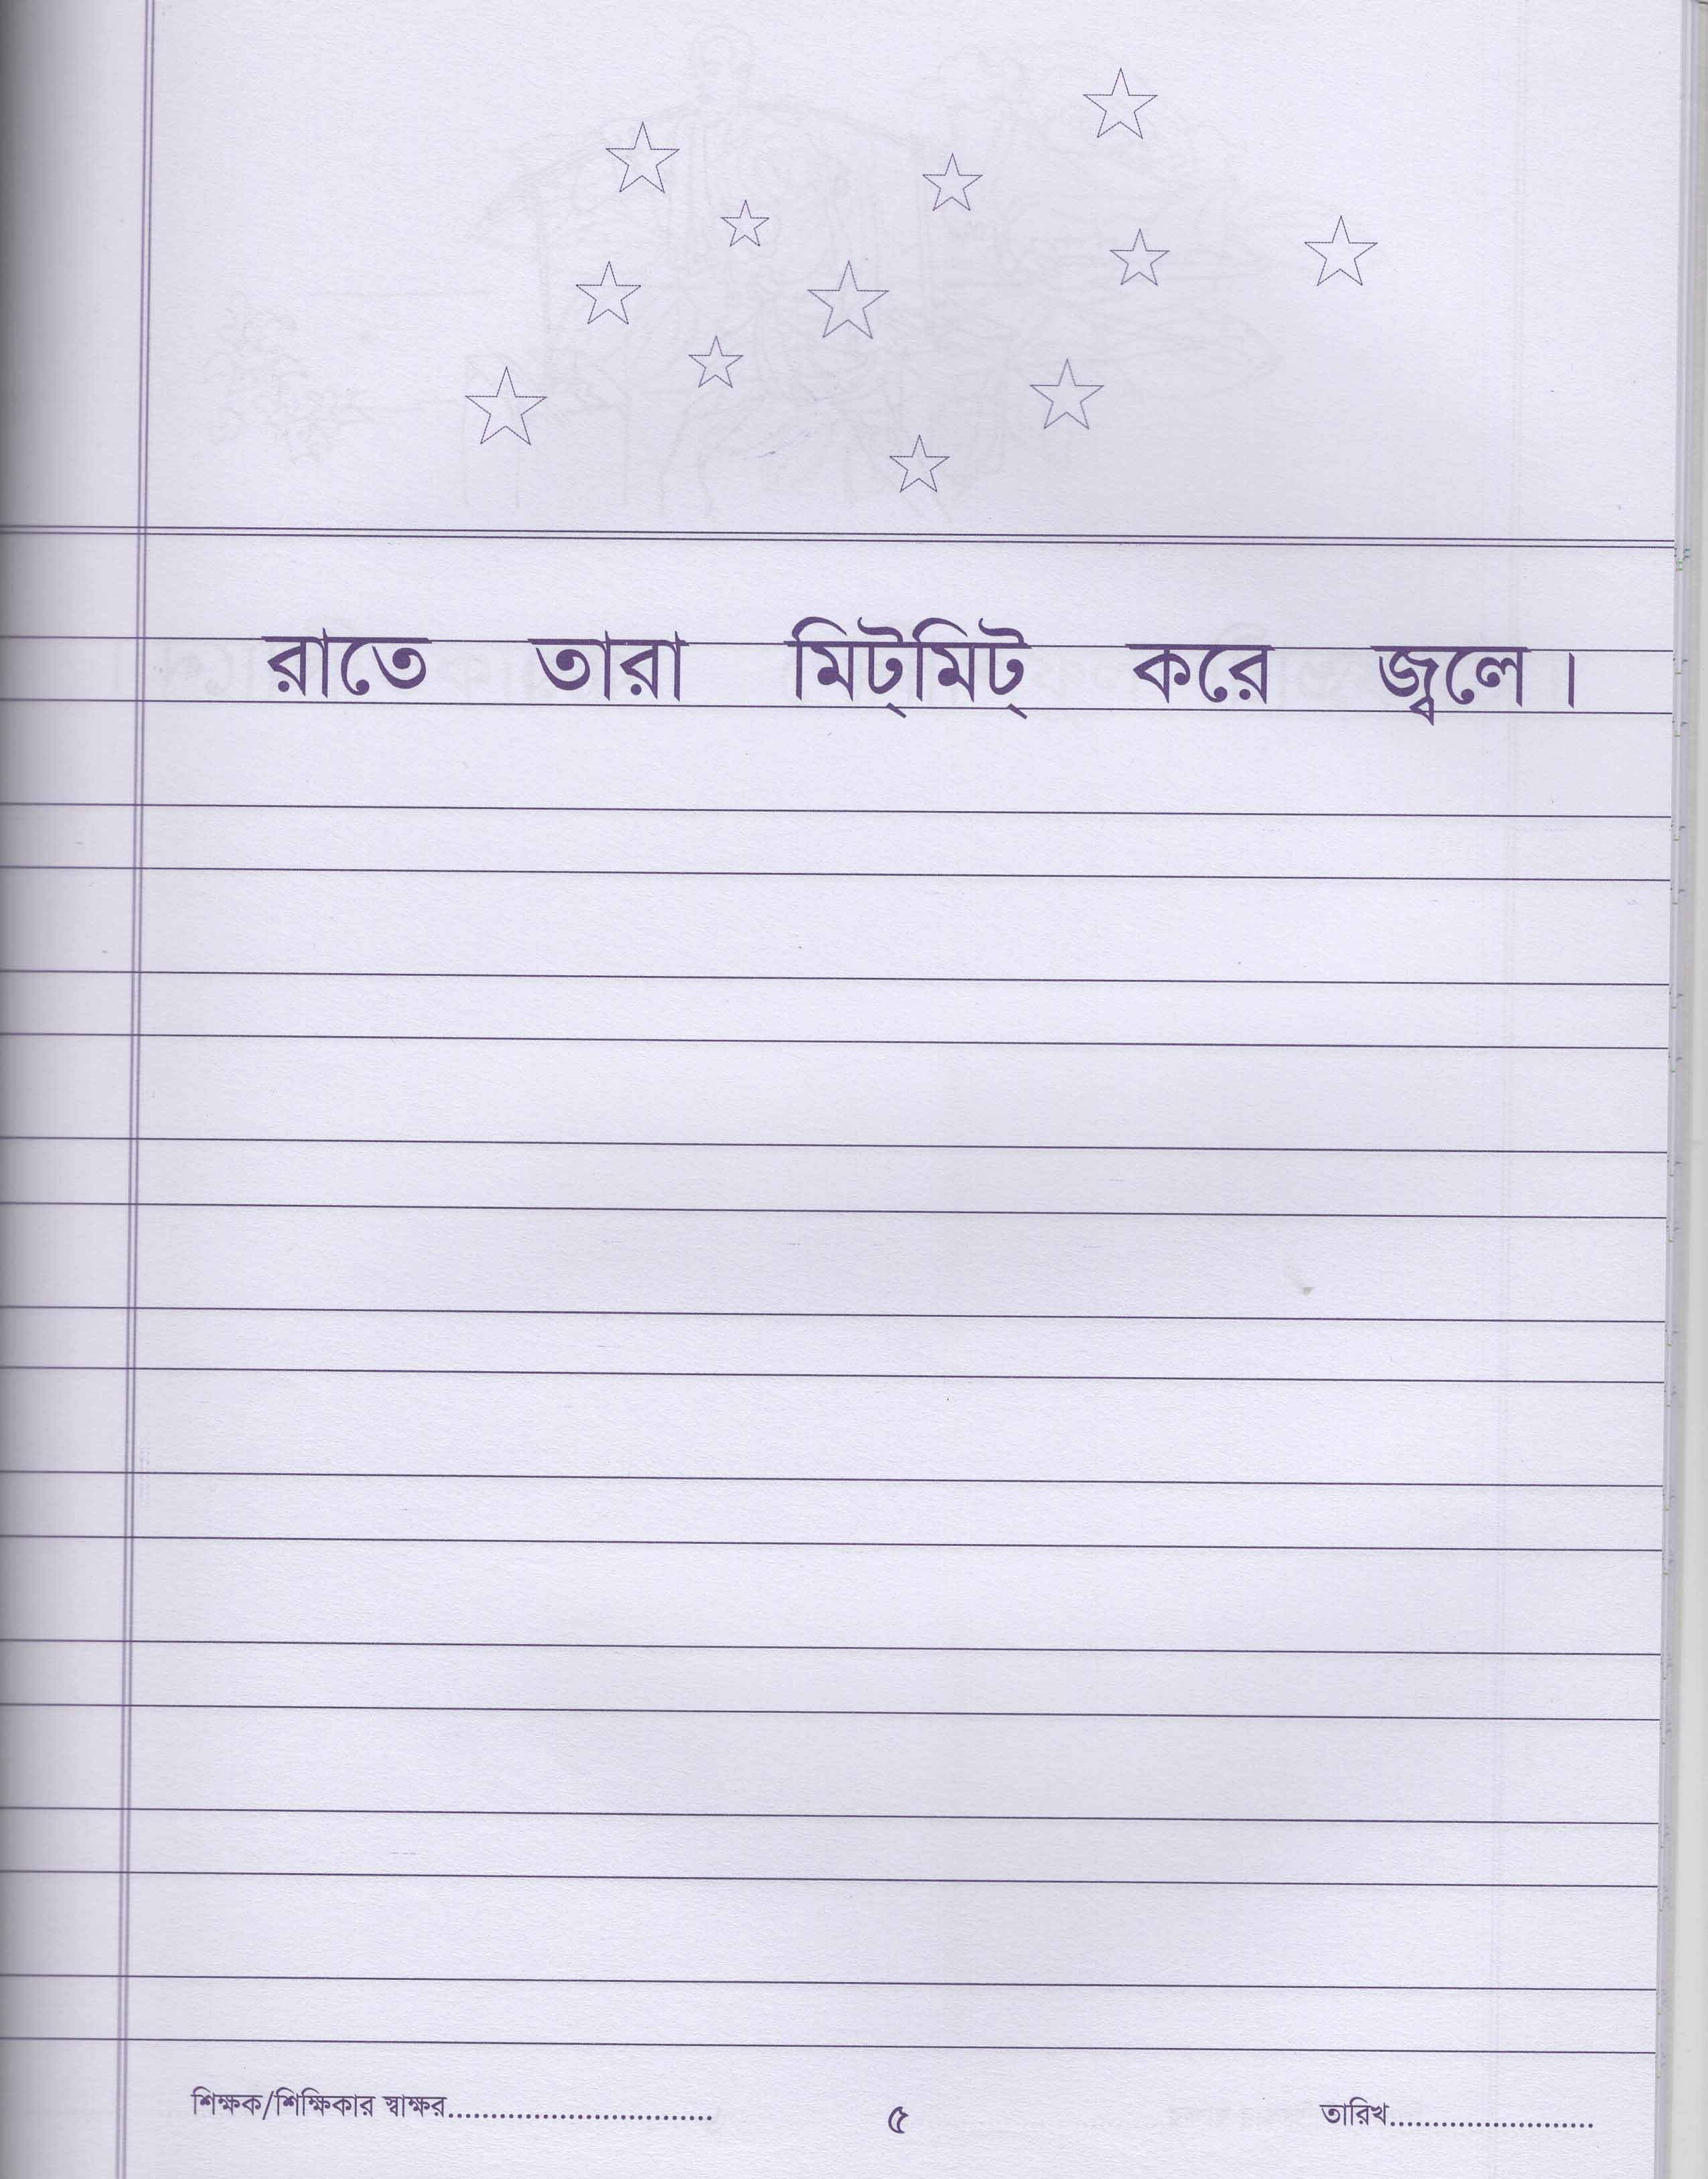 রাতে তারা মিট্‌মিট্‌ করে জ্বলে।
শিক্ষক/শিক্ষিকার স্বাক্ষর............................... ৫ তারিখ........................